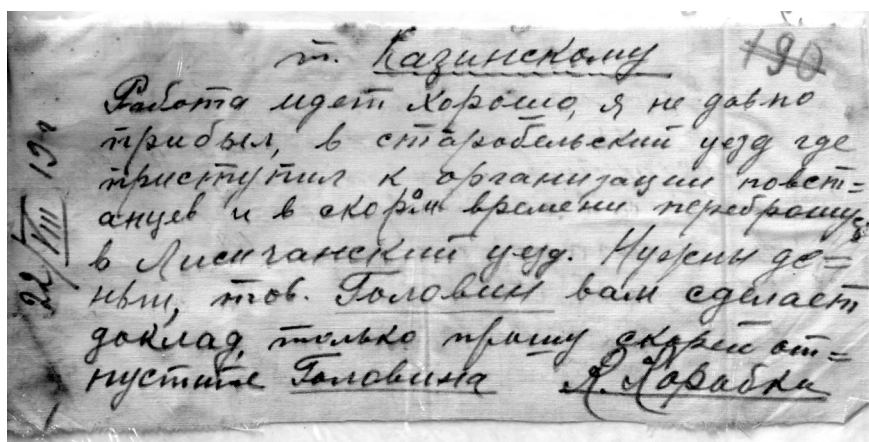 190
т. Казинскому
Работа идет хорошо, я не давно
прибыл, в старобельский уезд где
приступил к организации повст=
анцев и в скором времени переброшусь
в Лисичанский уезд. Нужны де=
ньги, тов. Головин вам сделает
доклад, только прошу скорей от=
пустите Головина А. Коробка
22/VIII 19 г